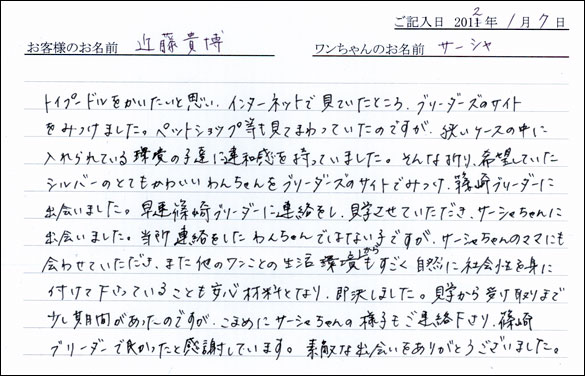 ご記入日 2012年 1月7日
お客様のお名前 近藤貴博 ワンちゃんのお名前 サーシャ
トイプードルをかいたいと思い、インターネットで見ていたところ、ブリーダーズのサイト
をみつけました。ペットショップ等も見てまわっていたのですが、狭いケースの中に
入れられている環境の子達に違和感を持っていました。そんな折り、希望していた
シルバーのとてもかわいいわんちゃんをブリーダーズのサイトでみつけ、篠崎ブリーダーに
出会いました。早速篠崎ブリーダーに連絡をし、見学させていただき、サーシャちゃんに
出会いました。当初連絡をしたわんちゃんではない子ですが、サーシャちゃんのママにも
会わせていただき、また他のワンことの生活環境からもすごく自然に社会性を身に
付けて下さっていることも安心材料となり、即決しました。見学から受け取りまで
少し期間があったのですが、こまめにサーシャちゃんの様子もご連絡下さり、篠崎
ブリーダーで良かったと感謝しています。素敵な出会いをありがとうございました。